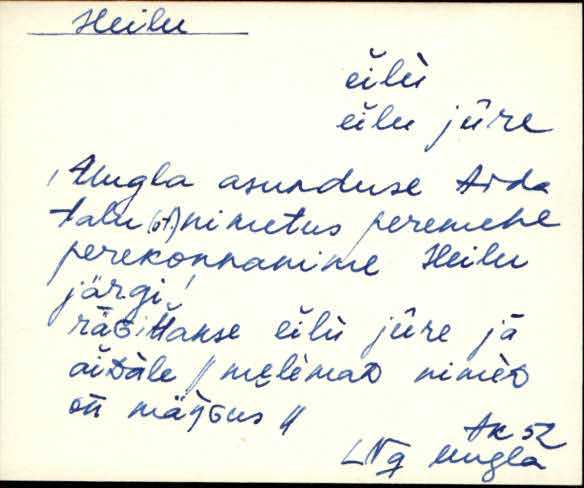 Heilu
ěilù
ěilu jûre
Ungla asunduse Aida
talu (st.) nimetus peremehe
perekonnanime Heilu
järgi!
räɢittakse ěilù jûre jà
aiᴅàle // melèmaᴅ nimèᴅ
on mäŋɢus //
AK 52
LNg Ungla